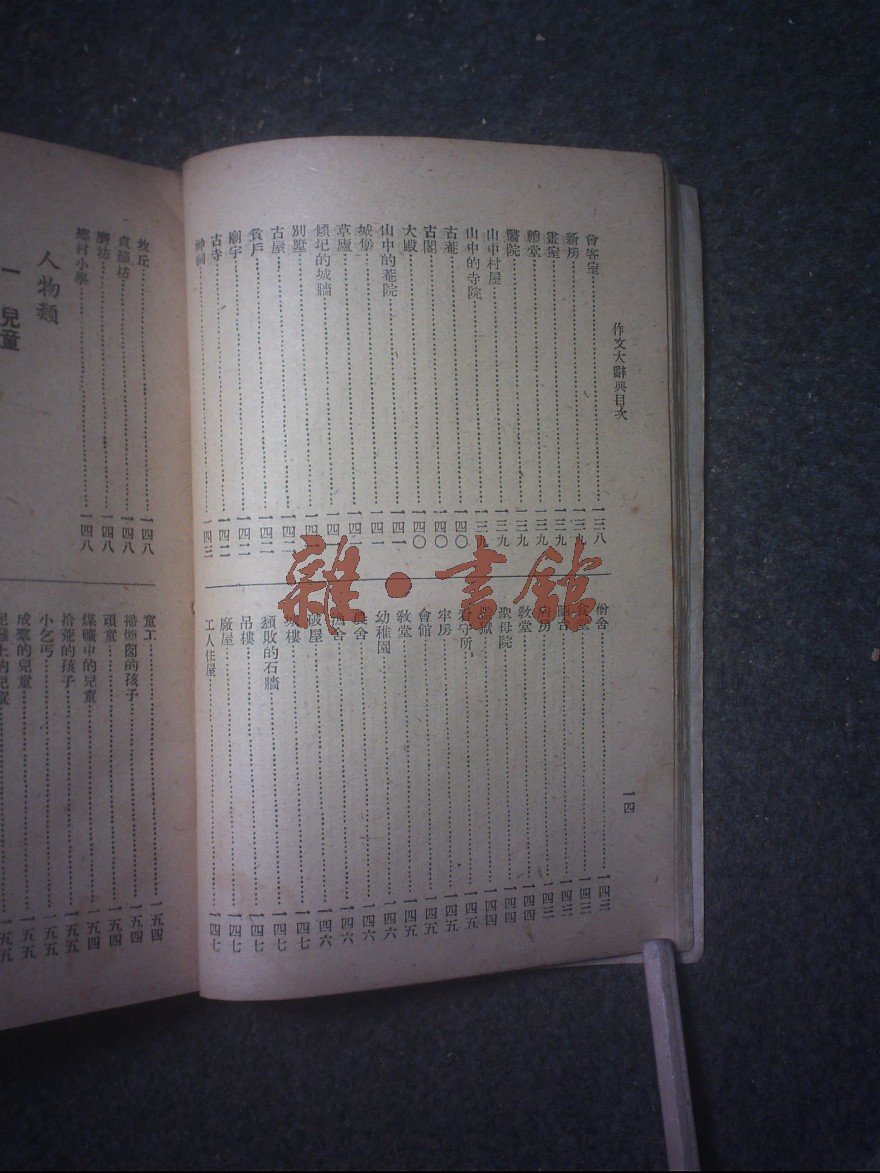 作文大辭典目次
一四
會客室……一三八
新房……一三九
畫室……一三九
禮堂……一三九
醫院……一三九
山中村屋……一三九
山中的寺院……一三九
古菴……一四〇
古閣……一四〇
大殿……一四〇
山中的菴院……一四一
城堡……一四一
草廬……一四一
傾圮的城牆
別墅
古屋……一四二
貧戶……一四二
廟宇……一四二
古寺……一四二
神祠……一四三
僧舍……一四三
……一四三
……一四三
……一四三
教堂……一四四
聖母院……一四四
……一四四
看守所……一四五
牢房……一四五
會館……一四五
教堂……一四五
幼稚園……一四六
農舍……一四六
漁舍……一四六
破屋……一四六
城樓……一四七
頹敗的石牆……一四七
吊樓……一四七
廠屋……一四七
工人住屋……一四七
牧丘……一四八
貞節坊……一四八
磨坊……一四八
鄉村小學……一四八
人物類
一 兒童
童工……一五四
掃煙囱的孩子……一五四
頑童……一五四
煤礦中的兒童……一五四
拾荒的孩子……一五五
小乞丐……一五五
成羣的兒童……一五五
雜·書館